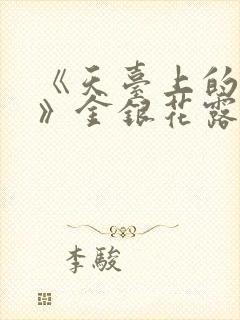 《天臺上的
》金銀花露
李駿